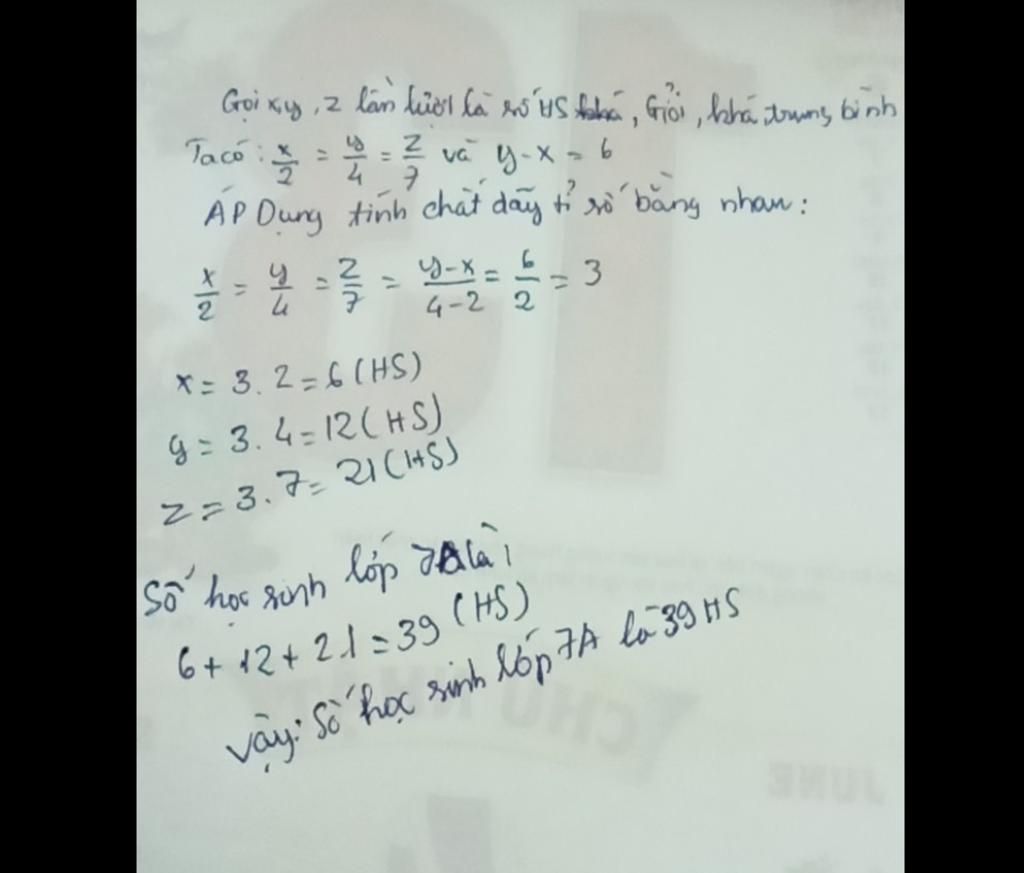 Gọi x, y, z lần lượt là số HS, Giỏi, khá, trung bình
Ta có: x/2 = y/4 = z/7 và y - x = 6
ÁP Dụng tính chất dãy tỉ số bằng nhau:
x/2 = y/4 = z/7 = y-x/4-2 = 6/2 = 3
x = 3. 2 = 6 (HS)
y = 3. 4 = 12 (HS)
z = 3. 7 = 21 (HS)
Số học sinh lớp 7A là:
6 + 12 + 21 = 39 (HS)
Vậy: Số học sinh lớp 7A là 39 HS
CHỦ NHẬT
JUNE